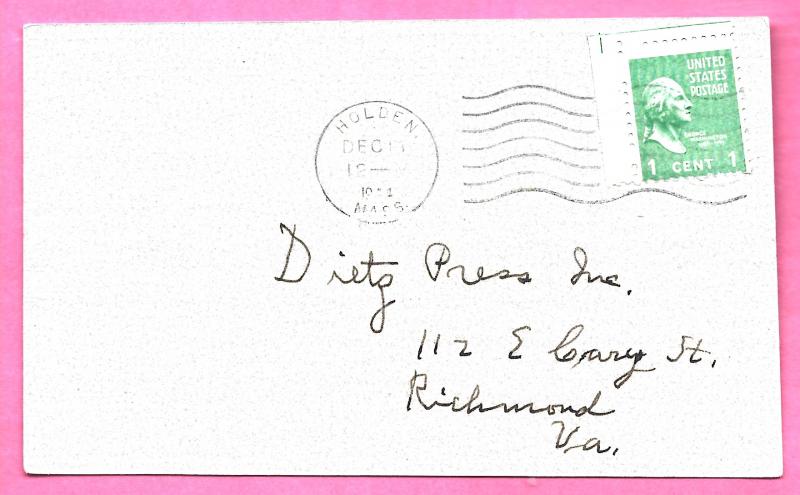 UNITED
STATES
POSTAGE
HOLDEN,
DEC
MASS.
GEORGE
WASHINGTON
1 CENT 1
Dietz Press Inc.
112 E Cary St.
Richmond
Va.